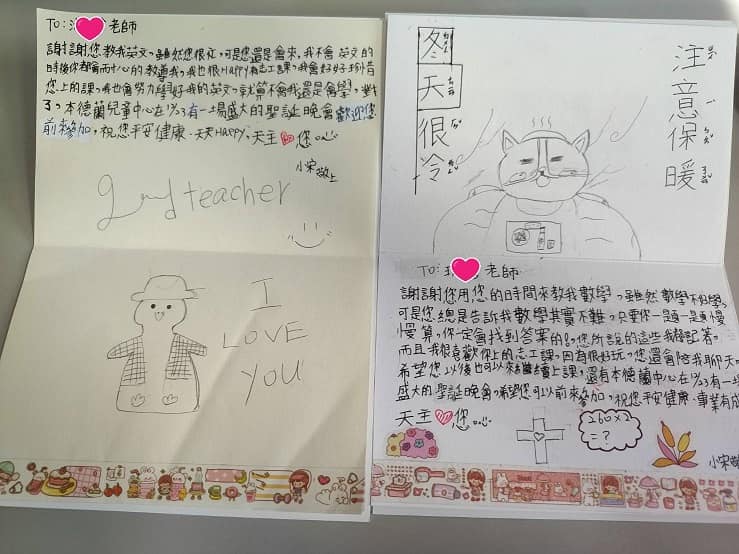 TO: 老師
謝謝您教我英文,雖然您很忙,可是您還是會來,我不會英文的
時後你都會而十心的教導我,我也很Happy有志工課,我會好好珍惜
您上的課,我也會努力學好我的英文,就算不會我還是會學,對
了,本德蘭兒童中心在12/23有一場盛大的聖誕晚會歡迎您
前來參加,祝您平安健康、天天Happy、天主 您
小宋敬上
good teacher
I
LOVE
YOU
冬天很冷
注意保暖
TO: 老師
謝謝您用您的時間來教我數學,雖然數學不好學,
可是您總是告訴我數學其實不難,只要你一題一題慢
慢算,你一定會找到答案的,您所說的這些我都記著,
而且我很喜歡你上的志工課,因為很好玩,您還會陪我聊天,
希望您以後也可以來繼續上課,還有本德蘭中心在12/23有一場
盛大的聖誕晚會,希望您可以前來參加,祝您平安健康、事業有成
天主 您
260×2
=?
小宋敬